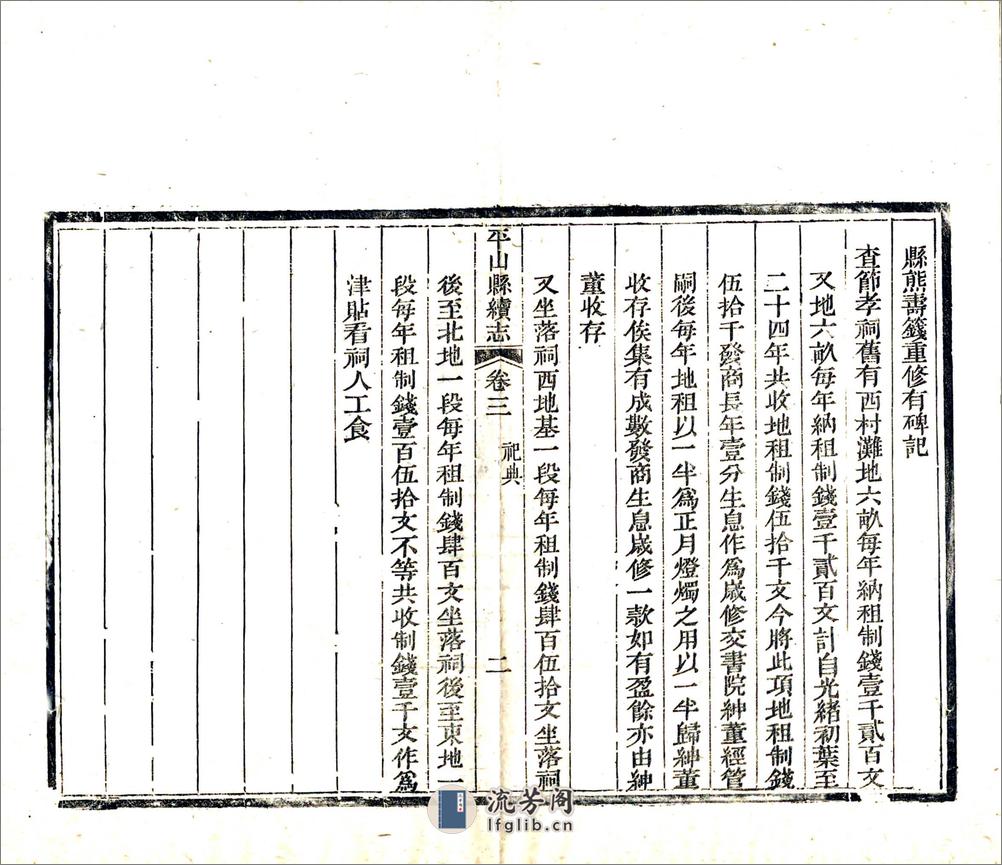 縣熊壽籛重修有碑記
查節孝祠舊有西村灘地六畝每年納租制錢壹千貳百文
又地六畝每年納租制錢壹千貳百文計自光緒初葉至
二十四年共收地租制錢伍拾千文今將此項地租制錢
伍拾千發商長年壹分生息作爲歲修交書院紳董經管
嗣後每年地租以一半爲正月燈燭之用以一半歸紳董
收存俟集有成數發商生息歲修一款如有盈餘亦由紳
董收存
又坐落祠西地基一段每年租制錢肆百伍拾文坐落祠
平山縣續志 卷三 祀典 二
後至北地一段每年租制錢肆百文坐落祠後至東地一
段每年租制錢壹百伍拾文不等共收制錢壹千文作爲
津貼看祠人工食
流芳阁
lfglib.cn